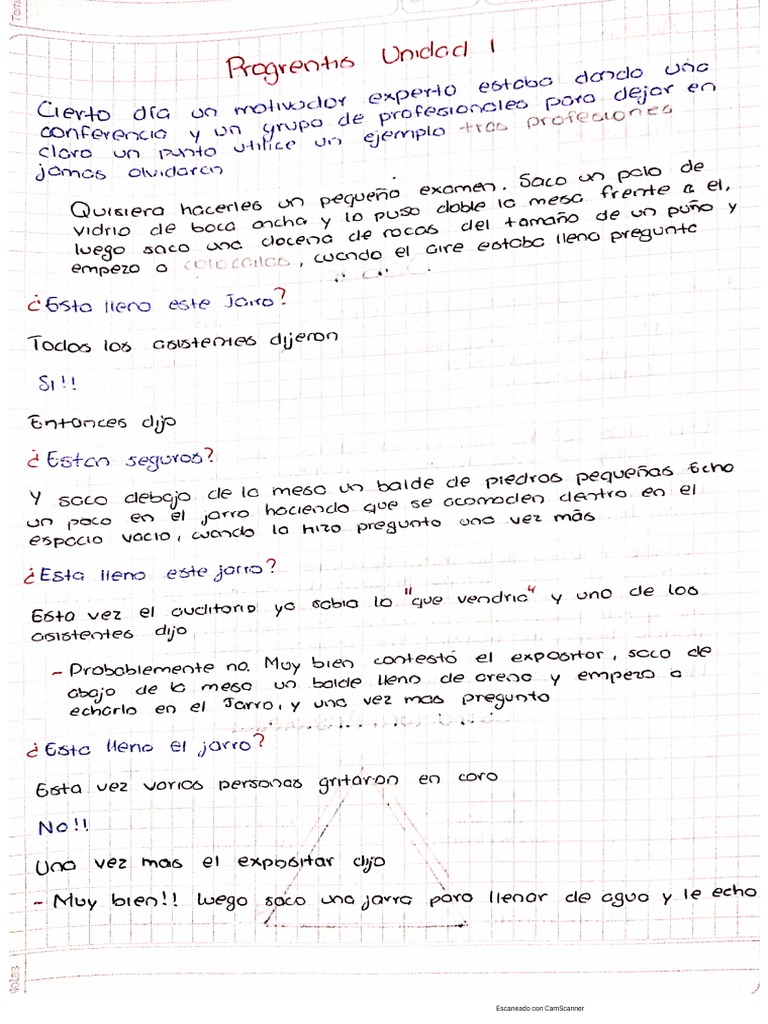 Progrentis Unidad 1
Cierto día un motivador experto estaba dando una
conferencia y un grupo de profesionales para dejar en
claro un punto utilice un ejemplo tras profesiones
jamas olvidaran
Quisiera hacerles un pequeño examen. Saco un palo de
vidrio de boca ancha y lo puso doble la mesa frente a el,
luego saco una docena de rocas del tamaño de un puño y
empezo a colocarlos, cuando el aire estaba lleno pregunto
¿Esta lleno este Jarro?
Todos los asistentes dijeron
Si!!
Entonces dijo
¿Estan seguros?
Y saco debajo de la mesa un balde de piedras pequeñas Echo
un poco en el jarro haciendo que se acomoden dentro en el
espacio vacio, cuando lo hizo pregunto una vez más
¿Esta lleno este jarro?
Esta vez el auditorio ya sabia lo "que vendria" y uno de los
asistentes dijo
- Probablemente no. Muy bien contestó el expositor, saco de
abajo de la mesa un balde lleno de arena y empezo a
echarlo en el Jarro, y una vez mas pregunto
¿Esta lleno el jarro?
Esta vez varios personas gritaron en coro
No!!
Una vez mas el expositar dijo
- Muy bien!! luego saco una jarra para llenar de agua y le echo
Notas
Escaneado con CamScanner